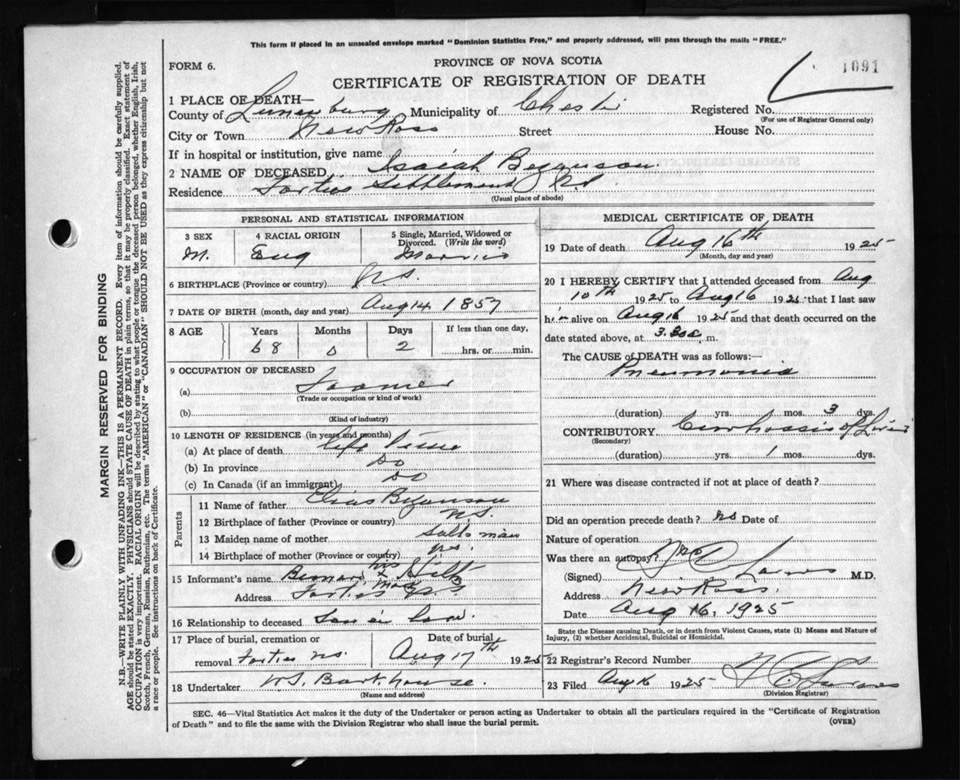 This form if placed in an unsealed envelope marked "Dominion Statistics Free," and properly addressed, will pass through the mails "FREE."
FORM 6.
PROVINCE OF NOVA SCOTIA
1091
CERTIFICATE OF REGISTRATION OF DEATH
1 PLACE OF DEATH—
County of Lunenburg Municipality of Chester Registered No.
(For use of Registrar General only)
City or Town New Ross Street House No.
If in hospital or institution, give name
2 NAME OF DECEASED Isaiah Bezanson
Residence Forties Settlement N.S.
(Usual place of abode)
PERSONAL AND STATISTICAL INFORMATION
3 SEX 4 RACIAL ORIGIN 5 Single, Married, Widowed or Divorced. (Write the word)
M. Eng Married
6 BIRTHPLACE (Province or country) N.S.
7 DATE OF BIRTH (month, day and year) Aug 14 1857
8 AGE Years Months Days If less than one day,
68 0 2 ....hrs. or ....min.
9 OCCUPATION OF DECEASED
(a) Farmer
(Trade or occupation or kind of work)
(b)
(Kind of industry)
10 LENGTH OF RESIDENCE (in years and months)
(a) At place of death life time
(b) In province Do
(c) In Canada (if an immigrant) Do
Parents
11 Name of father Elias Bezanson
12 Birthplace of father (Province or country) N.S.
13 Maiden name of mother
14 Birthplace of mother (Province or country) N.S.
15 Informant's name Hilt
Address Forties N.S.
16 Relationship to deceased Son in law
17 Place of burial, cremation or removal Forties N.S.
Date of burial Aug 17th 1925
18 Undertaker
(Name and address)
MEDICAL CERTIFICATE OF DEATH
19 Date of death Aug 16th 1925
(Month, day and year)
20 I HEREBY CERTIFY that I attended deceased from Aug
10th 1925 to Aug 16 1925 that I last saw
him alive on Aug 16 1925 and that death occurred on
date stated above, at m.
The CAUSE of DEATH was as follows:
Pneumonia
(duration) yrs. mos. 3 dys.
CONTRIBUTORY Cirrhossis of Liver
(Secondary)
(duration) yrs. 1 mos. dys.
21 Where was disease contracted if not at place of death?
Did an operation precede death? no Date of
Nature of operation
Was there an autopsy? no
(Signed) M.D.
Address New Ross
Date Aug 16, 1925
State the Disease causing Death, or in death from Violent Causes, state (1) Means and Nature of Injury, (2) whether Accidental, Suicidal or Homicidal.
22 Registrar's Record Number
23 Filed Aug 16 1925
(Division Registrar)
SEC. 46—Vital Statistics Act makes it the duty of the Undertaker or person acting as Undertaker to obtain all the particulars required in the "Certificate of Registration
of Death" and to file the same with the Division Registrar who shall issue the burial permit.
(OVER)
MARGIN RESERVED FOR BINDING
N.B.—WRITE PLAINLY WITH UNFADING INK—THIS IS A PERMANENT RECORD. Every item of information should be carefully supplied.
AGE should be stated EXACTLY. PHYSICIANS should STATE CAUSE OF DEATH in plain terms, so that it may be properly classified. Exact statement of
OCCUPATION is very important. RACIAL ORIGIN will be described by stating to what people or tongue the deceased person belonged, whether English, Irish,
Scotch, French, German, Russian, Ruthenian, etc. The terms "AMERICAN" or "CANADIAN" SHOULD NOT BE USED as they express citizenship but not
a race or people. See instructions on back of Certificate.